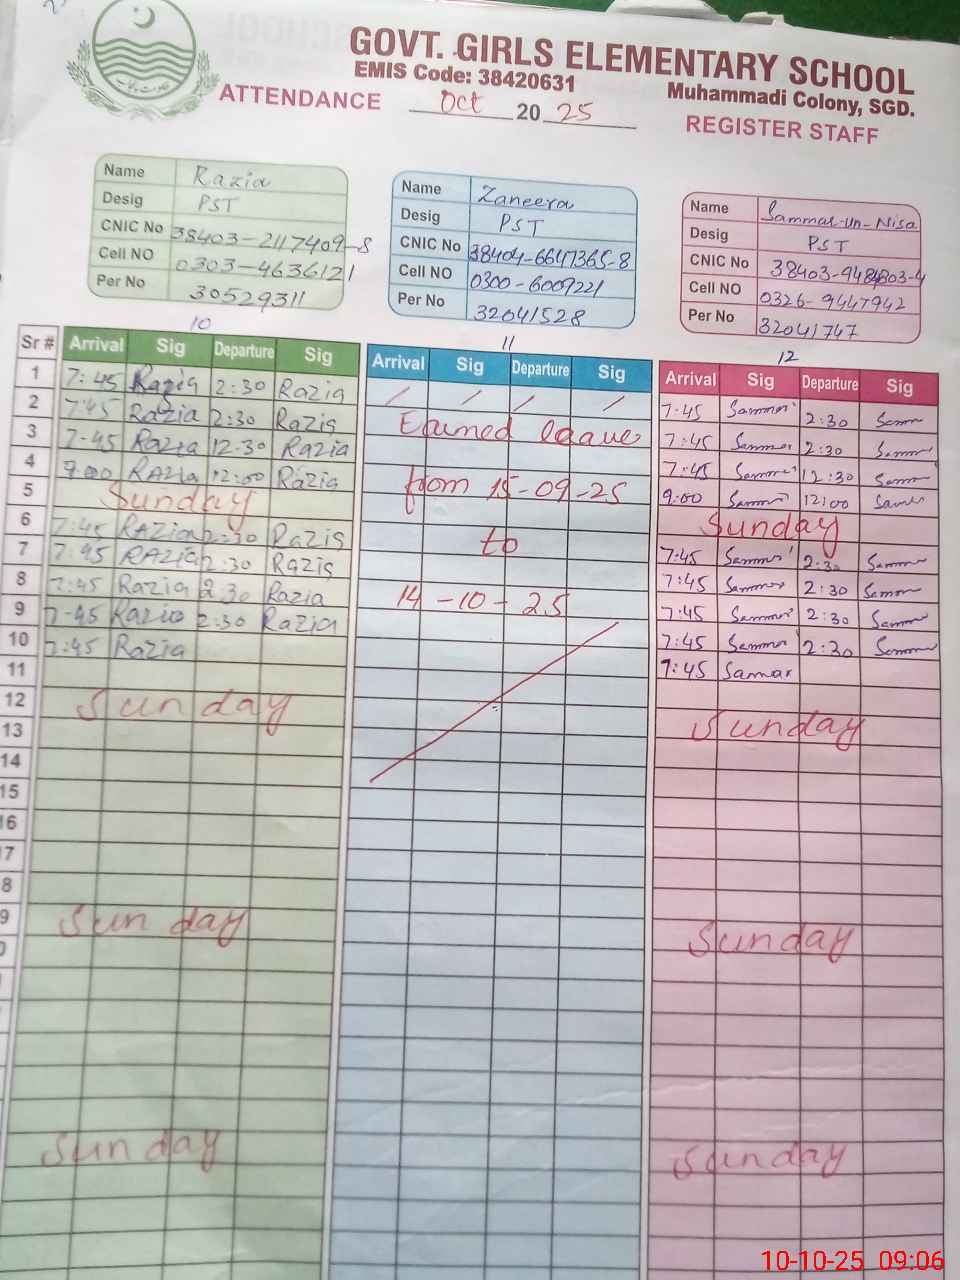 GOVT. GIRLS ELEMENTARY SCHOOL
EMIS Code: 38420631
Muhammadi Colony, SGD.
ATTENDANCE Oct 20 25 REGISTER STAFF
Name Razia
Desig PST
CNIC No 38403-2117409-8
Cell NO 0303-4636121
Per No 30529311
Name Zaneera
Desig PST
CNIC No 38404-6647365-8
Cell NO 0300-6009221
Per No 32041528
Name Sammar-un-Nisa
Desig PST
CNIC No
Cell NO 0326-9447942
Per No 32041747
10 11 12
Sr # Arrival Sig Departure Sig Arrival Sig Departure Sig Arrival Sig Departure Sig
1 7:45 Razia 2:30 Razia / / / / 7:45 Sammar 2:30 Samm
2 7:45 Razia 2:30 Razia Earned leave 7:45 Sammar 2:30 Samm
3 7-45 Razia 12-30 Razia 7:45 Samm 12:30 Samm
4 9:00 RAZia 12:00 Razia from 15-09-25 9:00 Samm 12:00 Samm
5 Sunday Sunday
6 7:45 RAZia 2:30 Razia to 7:45 Sammar 2:30 Samm
7 7:45 RAZia 2:30 Razia 7:45 Sammar 2:30 Samm
8 7:45 Razia 2:30 Razia 14-10-25 7:45 Sammar 2:30 Samm
9 7-45 Razia 2:30 Razia 7:45 Sammar 2:30 Samm
10 7:45 Razia 7:45 Samar
11
12 Sunday Sunday
13
14
15
16
7
8
9 Sunday Sunday
0
Sunday Sunday
10-10-25 09:06